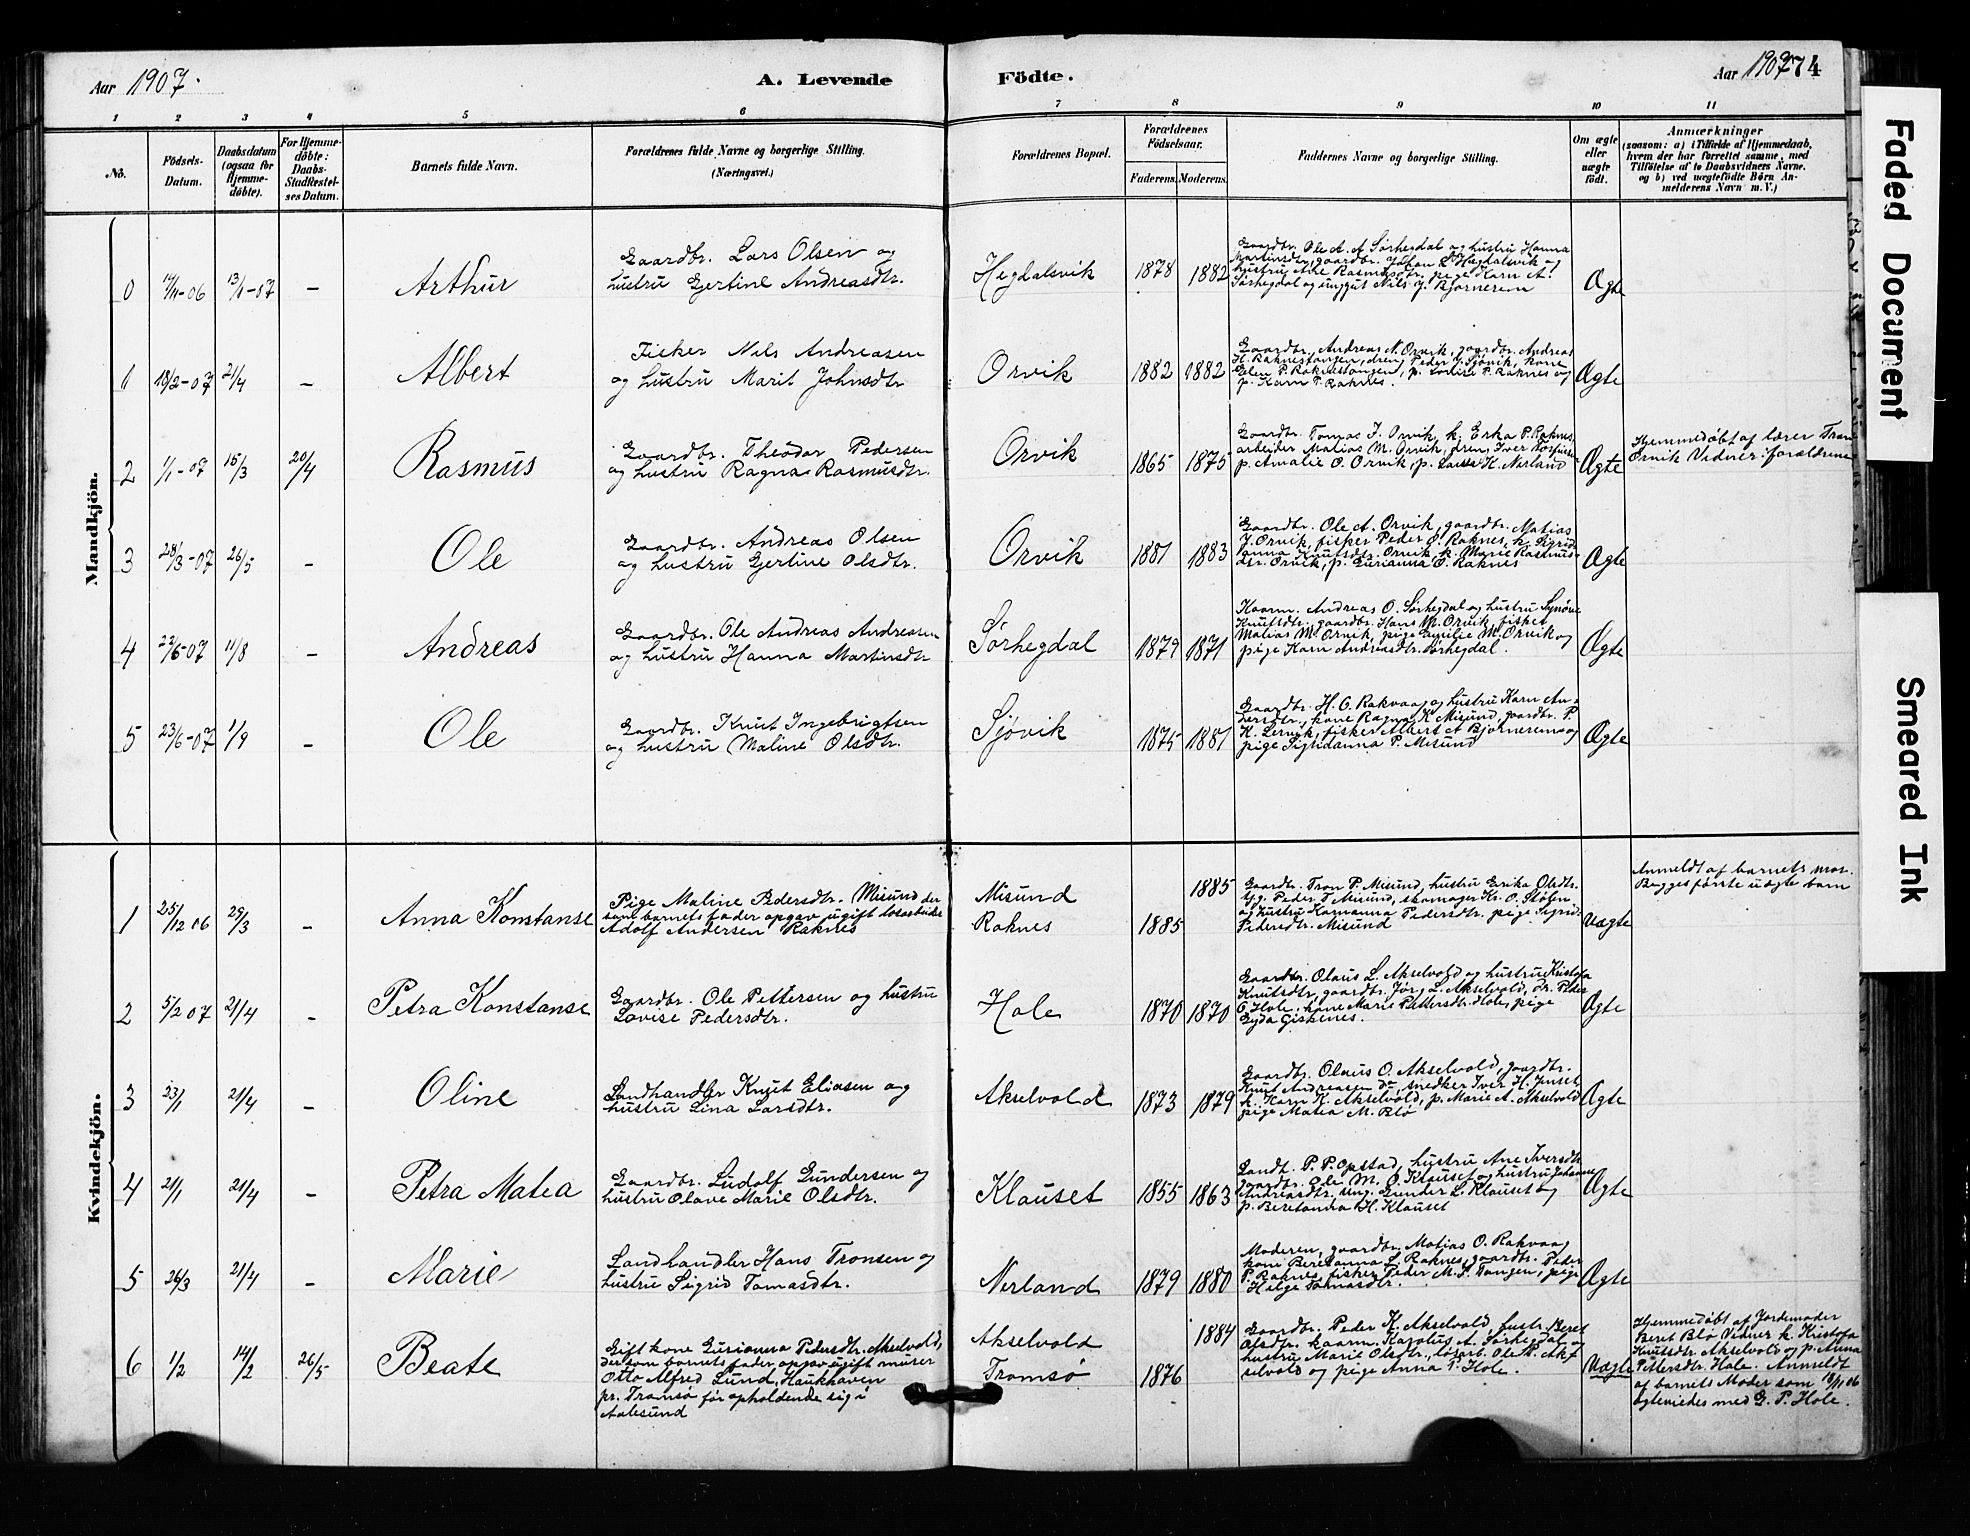 Aar 1907.
A. Levende
Födte.
Aar 1907
74
1 2 3 4 5 6 7 8 9 10 11
No.
Födsels-
Datum.
Daabsdatum
(ogsaa for
Hjemme-
döbte).
For Hjemme-
döbte:
Daabs-
Stadfæstel-
ses Datum.
Barnets fulde Navn.
Forældrenes fulde Navne og borgerlige Stilling.
(Næringsvei.)
Forældrenes Bopæl.
Forældrenes
Födselsaar.
Faderens. Moderens.
Faddernes Navne og borgerlige Stilling.
Om ægte
eller
uægte
født.
Anmærkninger
(saasom: a) i Tilfælde af Hjemmedaab,
hvem der har forrettet samme, med
Tilföielse af to Daabsvidners Navne,
og b) ved uægtefödte Börn An-
melderens Navn m. V.)
Mandkjön.
0 14/11-06 13/1-07 – Arthur
Gaardbr. Lars Olsen og
hustru Gjertine Andreasdtr.
Hegdalsvik 1878 1882
Gaardbr. Ole A. A. Sørhegdal og hustru Hanna
Martinsdtr, gaardbr. Johan L. Hegdalsvik og
hustru Ane Rasmusdtr. pige Karn A.
Sørhegdal og unggut Nils J. Bjørnerem
Ægte
1 18/2-07 21/4 – Albert
Fisker Nils Andreasen
og hustru Marit Johnsdtr
Orvik 1882 1882
Gaardbr. Andreas N. Orvik, gaardbr. Andreas
H. Raknestangen, dreng Peder J. Sjøvik, kone
Elen P. Raknestangen, p. Lovise P. Raknes og
p. Karn P. Raknes.
Ægte
2 1/1-07 15/3 20/4 Rasmus
Gaardbr. Theodor Pedersen
og hustru Ragna Rasmusdtr.
Orvik 1865 1875
Gaardbr. Tomas J. Orvik, k. Erka P. Raknes,
arbeider Matias M. Orvik, dren Iver
p. Amalie O. Orvik, p. H. Nerland
Ægte
Hjemmedøbt af lærer Tron
Orvik Vidner: forældrene
3 28/3-07 26/5 – Ole
Gaardbr. Andreas Olsen
og hustru Gjertine Olsdtr.
Orvik 1881 1883
Gaardbr. Ole A. Orvik, gaardbr. Matias
J. Orvik, fisker Peder O. Raknes, k. Sigrid
anna Knutsdtr. Orvik, k. Marie Rasmus-
dtr. Orvik, p. Gurianna O. Raknes
Ægte
4 23/6-07 11/8 – Andreas
Gaardbr. Ole Andreas Andreasen
og hustru Hanna Martinsdtr
Sørhegdal 1879 1871
Kaarm. Andreas O. Sørhegdal og hustru Synøve
Knutsdtr. gaardbr. Hans M. Orvik, fisker
Matias M. Orvik, pige Emilie M. Orvik og
pige Karn Andreasdtr. Sørhegdal.
Ægte
5 23/6-07 1/9 – Ole
Gaardbr. Knut Ingebrigtsen
og hustru Maline Olsdtr.
Sjøvik 1875 1881
Gaardbr. H. O. Rakvaag og hustru Karn An-
dersdtr., kone Ragna K. Misund, gaardbr. P.
K. Lervik, fisker Albert A Bjørnerem og
pige Sigridanna P. Misund
Ægte
Kvindekjön.
1 25/12 06 29/3 – Anna Konstanse
Pige Maline Pedersdtr. Misund der
som barnets fader opgav ugift løsarbeider
Adolf Andersen Raknes
Misund
Raknes
1885 1885
Gaardbr. Tron P. Misund, hustru Erika Olsdtr.
Ug. Peder T. Misund, skomager Kr. O. Stølen
og hustru Karnanna Pedersdtr. pige Sigrid
Pedersdtr. Misund
Uægte
Anmeldt af barnets mor.
Begges første uægte barn
2 5/2 07 21/4 – Petra Konstanse
Gaardbr. Ole Pettersen og hustru
Lovise Pedersdtr.
Hole 1870 1870
Gaardbr. Olaus L. Akselvold og hustru Kristofa
Knutsdtr, gaardbr. Jørg. L. Akselvold, Dr. Peder
O. Hole, kone Marie Pettersdtr. Hole, pige
Gyda Giskenes.
Ægte
3 23/1 21/4 – Oline
Landhandler Knut Eliasen og
hustru Lina Larsdtr.
Akselvold 1873 1879
Gaardbr. Olaus O. Akselvold, gaardbr.
Knut Andreasen do, snedker Iver H. Jenset,
k. Karn K. Akselvold, p. Marie A. Akselvold
pige Matea M. Blø
Ægte
4 21/1 21/4 – Petra Matea
Gaardbr. Ludolf Gundersen og
hustru Olave Marie Olsdtr.
Klauset 1855 1863
Landh. P. P. Opstad, hustru Ane Iversdtr
gaardbr. Ole M. O. Klauset og hustru Johanne
Andreasdtr, ung. Gunder L. Klauset og
p. Beretanna H. Klauset
Ægte
5 26/3 21/4 – Marie
Landhandler Hans Tronsen og
hustru Sigrid Tomasdtr.
Nerland 1879 1880
Moderen, gaardbr. Matias O. Rakvaag
kone Beretanna L. Raknes, gaardbr. Peder
P. Raknes, fisker Peder M. S. Tangen, pige
Helge Tomasdtr.
Ægte
6 1/2 14/2 26/5 Beate
Gift kone Gurianna Pedersdtr. Akselvold,
der som barnets fader opgav ugift murer
Otto Alfred Lund, Haukhaven
pr. Tromsø før opholdende sig i
Aalesund
Akselvold
Tromsø
1884
1876
Gaardbr. Peder K. Akselvold, hustr. Beret
Olsdtr. kaarm. Karolus A. Sørhegdal og
hustru Marie Olsdtr., løsarb. Ole P. Ak-
selvold og pige Anna P. Hole.
Uægte
Hjemmedøbt af Jordemoder
Beret Blø Vidner k. Kristofa
Knutsdtr Akselvold og p. Anna
Pettersdtr. Hole. Anmeldt
af barnets Moder som 18/11 06
ægteviedes med G. P. Hole.
Faded Document
Smeared Ink